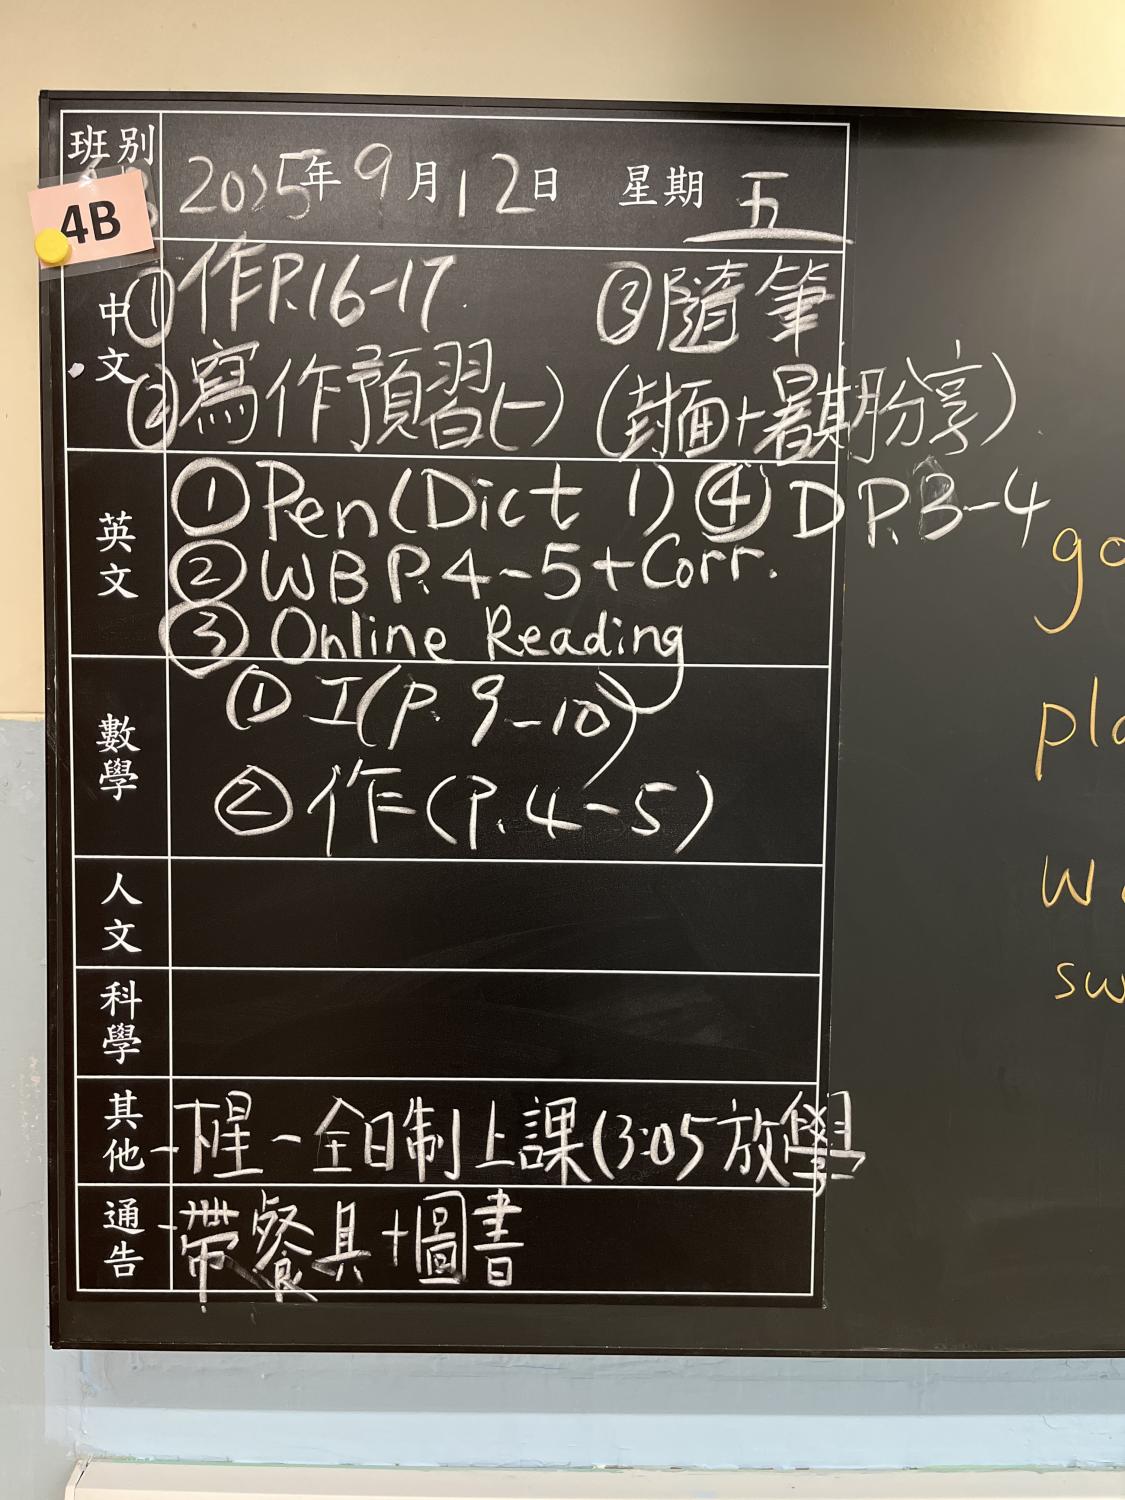 班別 4B 2025年9月12日 星期五
中文 ①作P.16-17. ③隨筆
②寫作預習(一) (封面+暑期分享)
英文 ①Pen(Dict 1) ④DP.3-4
②WB P.4-5+Corr.
③Online Reading
數學 ①工(P.9-10)
②作(P.4-5)
人文
科學
其他 -下星一全日制上課(3:05放學
通告 -帶餐具+圖書
go
pla
w
sw